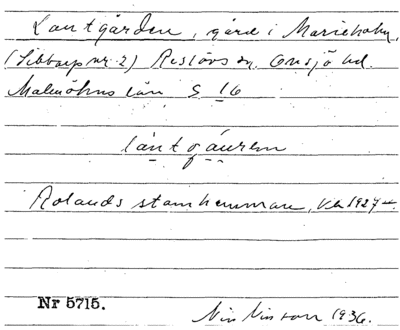 Lantgården, gård i Marieholm,
(Sibbarp nr 2) Reslövs sn, Onsjö hd.
Malmöhus län S 16
lántgáuren
Rolands stamhemman, 1927
Nr 5715.
1936.